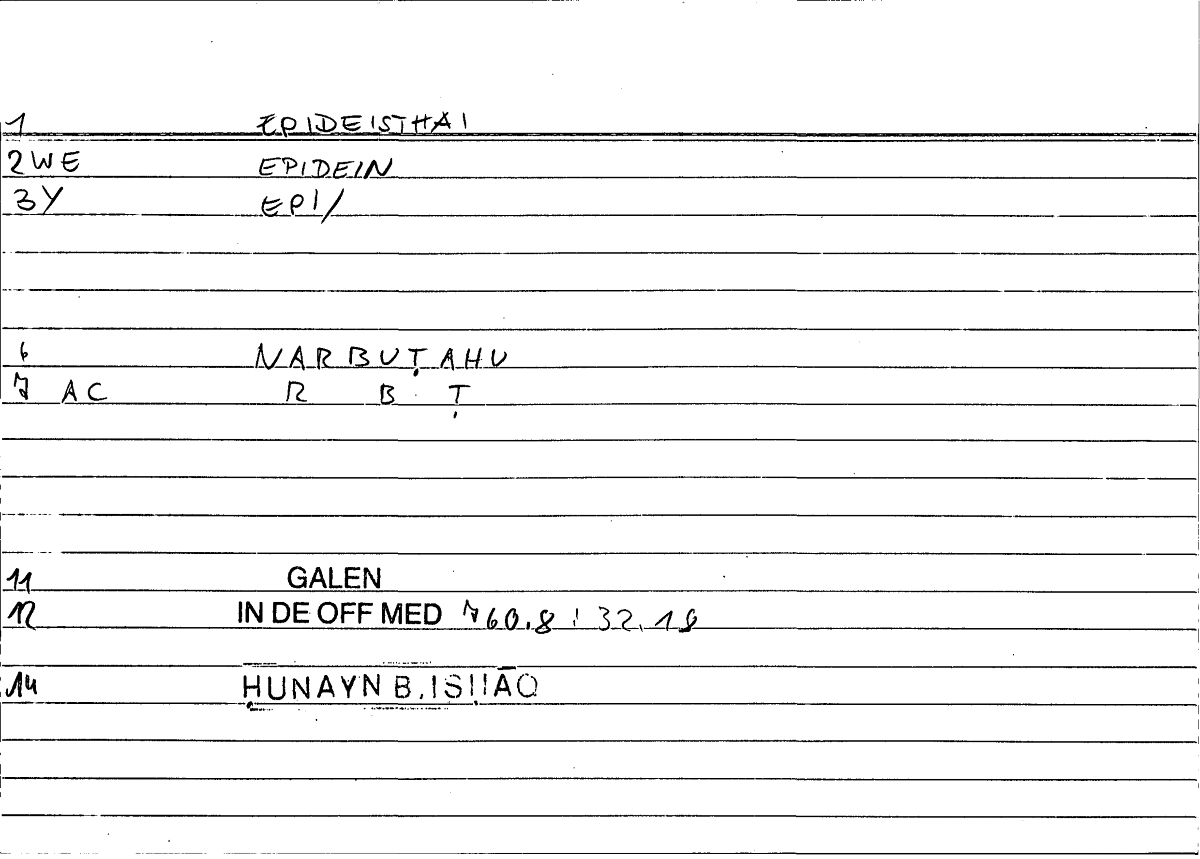 1 EPIDEISTHAI
2WE EPIDEIN
3Y EPI/
6 NARBUṬAHU
7 AC R B Ṭ
11 GALEN
12 IN DE OFF MED 760.8 : 32.18
14 ḤUNAYN B. ISḤĀQ